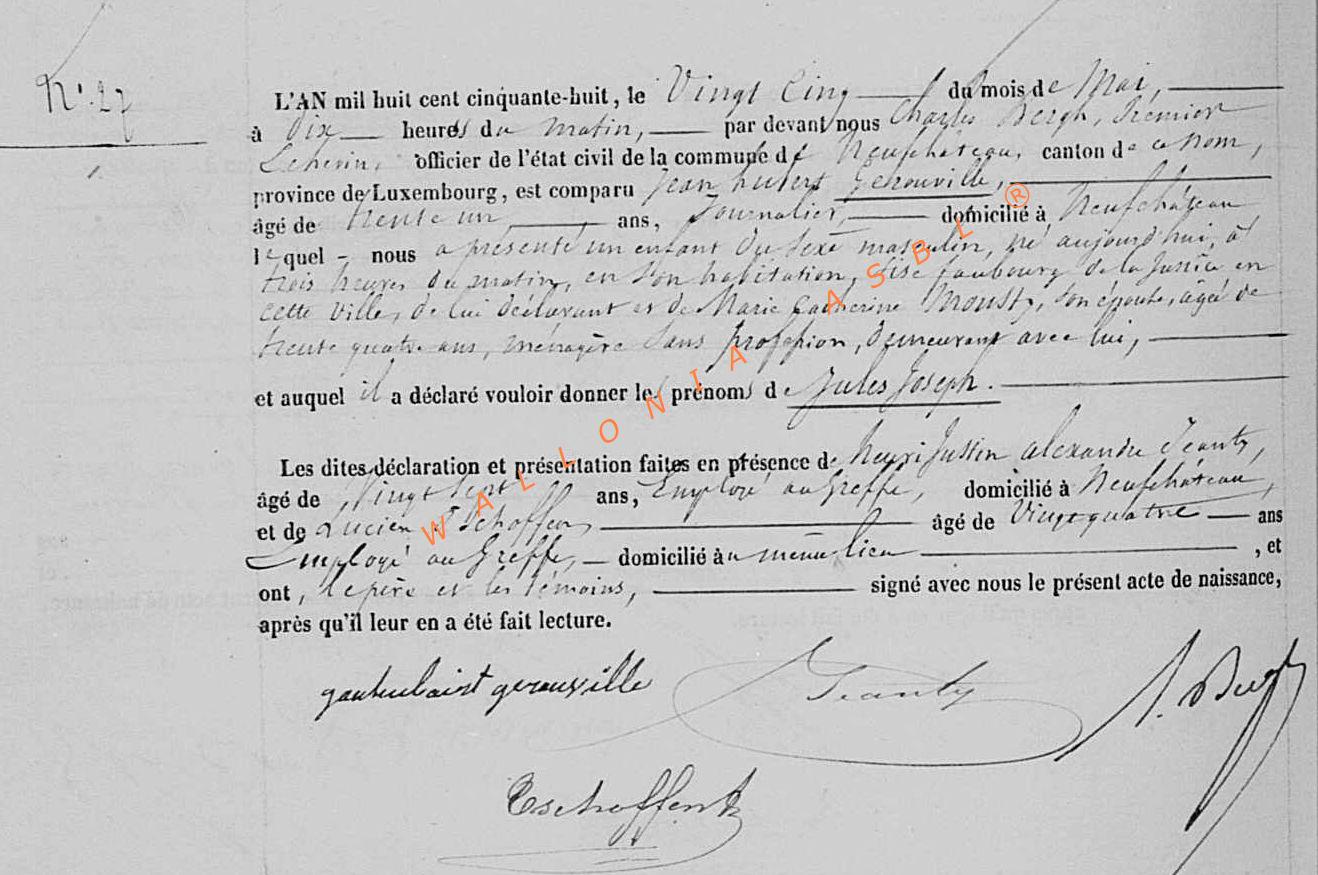 N° 27
L'AN mil huit cent cinquante-huit, le Vingt Cinq du mois de Mai,
à Dix heures du matin, par devant nous Charles Bergh, Premier
Echevin, officier de l'état civil de la commune de Neufchâteau, canton de ce nom,
province de Luxembourg, est comparu Jean hubert Gerouville,
âgé de trente un ans, Journalier, domicilié à Neufchâteau
lequel - nous a présenté un enfant du sexe masculin, né aujourd'hui, à
trois heures du matin, en son habitation, sise faubourg de la Justice en
cette ville, de lui déclarant et de Marie Catherine Mousty, son épouse, âgée de
trente quatre ans, ménagère sans profession, demeurant avec lui,
et auquel il a déclaré vouloir donner les prénoms de Jules Joseph.
Les dites déclaration et présentation faites en présence de henri Justin alexandre Jeanty,
âgé de Vingt sept ans, Employé au Greffe, domicilié à Neufchâteau,
et de Lucien Tschoffen, âgé de Vingt quatre ans
Employé au Greffe, domicilié au même lieu , et
ont, le père et les témoins, signé avec nous le présent acte de naissance,
après qu'il leur en a été fait lecture.
gerouville
Jeanty
Tschoffen
WALLONIA ASBL ®